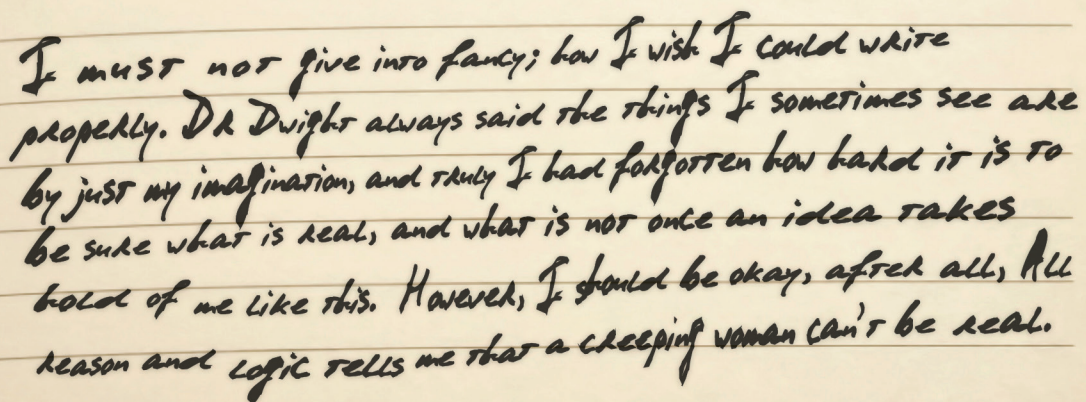 I must not give into fancy; how I wish I could write
properly. Dr Dwight always said the things I sometimes see are
by just my imagination, and truly I had forgotten how hard it is to
be sure what is real, and what is not once an idea takes
hold of me like this. However, I should be okay, after all, All
reason and logic tells me that a creeping woman can't be real.